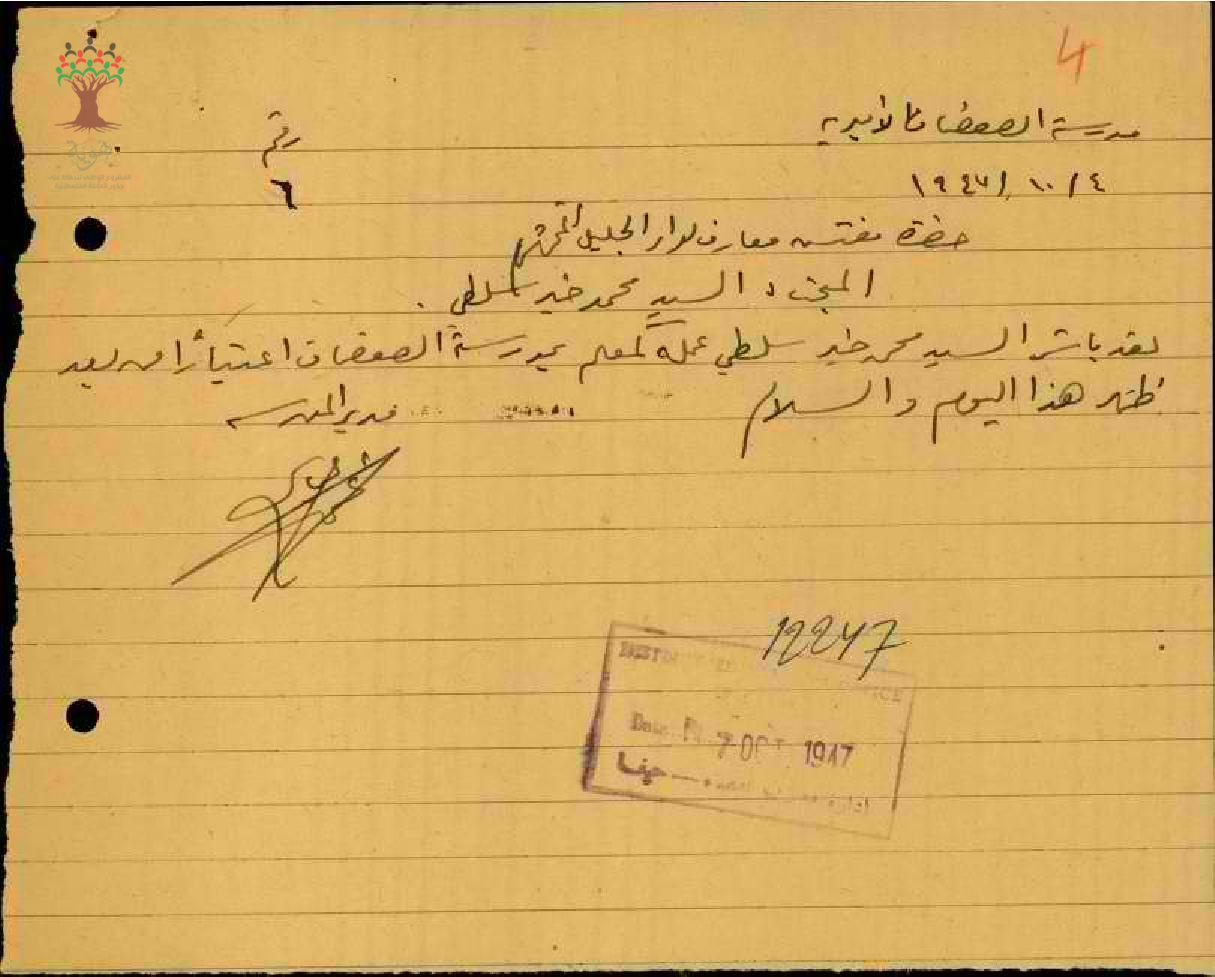 4
مدرسة الصفصاف الأميرية
رقم
٦
٤/١٠/١٩٤٧
حضرة مفتش معارف لواء الجليل المحترم
المبحث: السيد محمد خير سلطي.
لقد باشر السيد محمد خير سلطي عمله كمعلم بمدرسة الصفصاف اعتباراً من بعد
ظهر هذا اليوم والسلام
مدير المدرسه
12247
OFFICE
Date 7 OCT 1947
حيفا